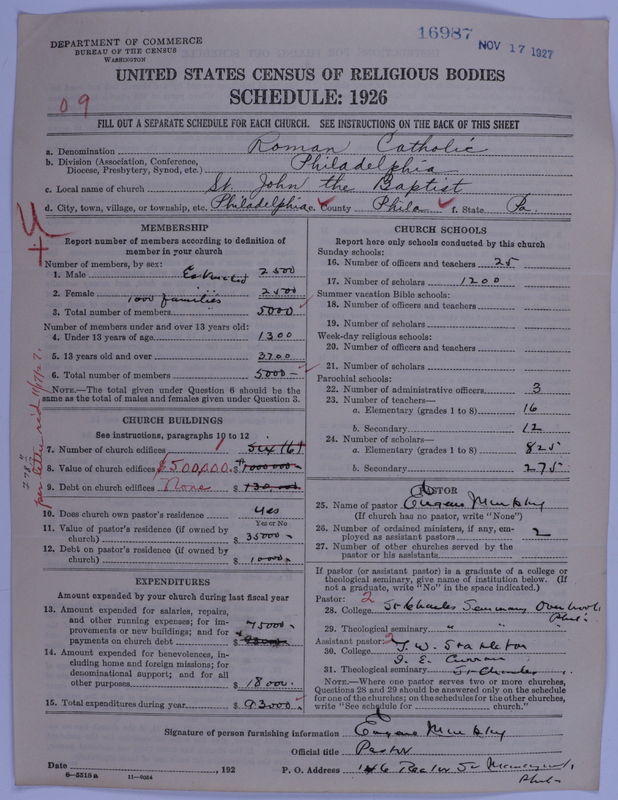 16987
NOV 17 1927
DEPARTMENT OF COMMERCE
BUREAU OF THE CENSUS
WASHINGTON
UNITED STATES CENSUS OF RELIGIOUS BODIES
SCHEDULE: 1926
09
FILL OUT A SEPARATE SCHEDULE FOR EACH CHURCH. SEE INSTRUCTIONS ON THE BACK OF THIS SHEET
a. Denomination Roman Catholic
b. Division (Association, Conference, Diocese, Presbytery, Synod, etc.) Philadelphia
c. Local name of church St. John the Baptist
d. City, town, village, or township, etc. Philadelphia e. County Phila f. State Pa.
MEMBERSHIP
Report number of members according to definition of
member in your church
Number of members, by sex:
1. Male Estimated 2500
2. Female 2500
1000 families
3. Total number of members 5000
Number of members under and over 13 years old:
4. Under 13 years of age 1300
5. 13 years old and over 3700
6. Total number of members 5000
NOTE.—The total given under Question 6 should be the
same as the total of males and females given under Question 3.
CHURCH BUILDINGS
See instructions, paragraphs 10 to 12
7. Number of church edifices 1 Six (6)
8. Value of church edifices $500,000. $ 1000000
9. Debt on church edifices None $ 130,000
10. Does church own pastor's residence yes
Yes or No
11. Value of pastor's residence (if owned by
church) $ 35000
12. Debt on pastor's residence (if owned by
church) $ 10000
EXPENDITURES
Amount expended by church during last fiscal year
13. Amount expended for salaries, repairs,
and other running expenses; for im-
provements or new buildings; and for
payments on church debt $ 75000
14. Amount expended for benevolences, in-
cluding home and foreign missions; for
denominational support; and for all
other purposes $ 18000.
15. Total expenditures during year $ 93000
CHURCH SCHOOLS
Report here only schools conducted by this church
Sunday schools:
16. Number of officers and teachers 25
17. Number of scholars 1200
Summer vacation Bible schools:
18. Number of officers and teachers
19. Number of scholars
Week-day religious schools:
20. Number of officers and teachers
21. Number of scholars
Parochial schools:
22. Number of administrative officers 3
23. Number of teachers—
a. Elementary (grades 1 to 8) 16
b. Secondary 12
24. Number of scholars—
a. Elementary (grades 1 to 8) 825
b. Secondary 275
PASTOR
25. Name of pastor Eugene Murphy
(If church has no pastor, write "None")
26. Number of ordained ministers, if any, em-
ployed as assistant pastors 2
27. Number of other churches served by the
pastor or his assistants
If pastor (or assistant pastor) is a graduate of a college or
theological seminary, give name of institution below. (If
not a graduate, write "No" in the space indicated.)
Pastor: 2
28. College St Charles Seminary Overbrook
Phila
29. Theological seminary " "
Assistant pastor: 2
30. College J. W. Stapleton
J. E. Curran
31. Theological seminary St Charles
NOTE.—Where one pastor serves two or more churches,
Questions 28 and 29 should be answered only on the schedule
for one of the churches; on the schedules for the other churches,
write "See schedule for church."
Signature of person furnishing information Eugene Murphy
Official title Pastor
Date , 192
P. O. Address 146 Rector St Manayunk,
Phila
6—5518a 11—9064